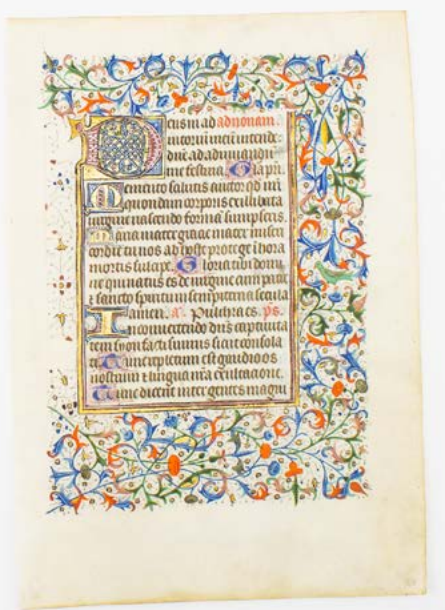 Deus in ad ad nonam.
iutoriu meu intende
dne ad adiuvandu
me festina. Gla pri.
Memento salutis auctor qd nri
quondam corporis ex illibata
virgine nascendo forma sumpseris.
Maria mater gratie mater miseri
cordie tu nos ab hoste protege i hora
mortis suscipe. Gloria tibi domi
ne qui natus es de virgine cum patre
et sancto spiritu in sempiterna secula
amen. a. Pulchra es. ps.
In convertendo dns captivita
tem syon facti sumus sicut consola
ti. Tunc repletum est gaudio os
nostrum et lingua nra exultacione.
Tunc dicent inter gentes magni